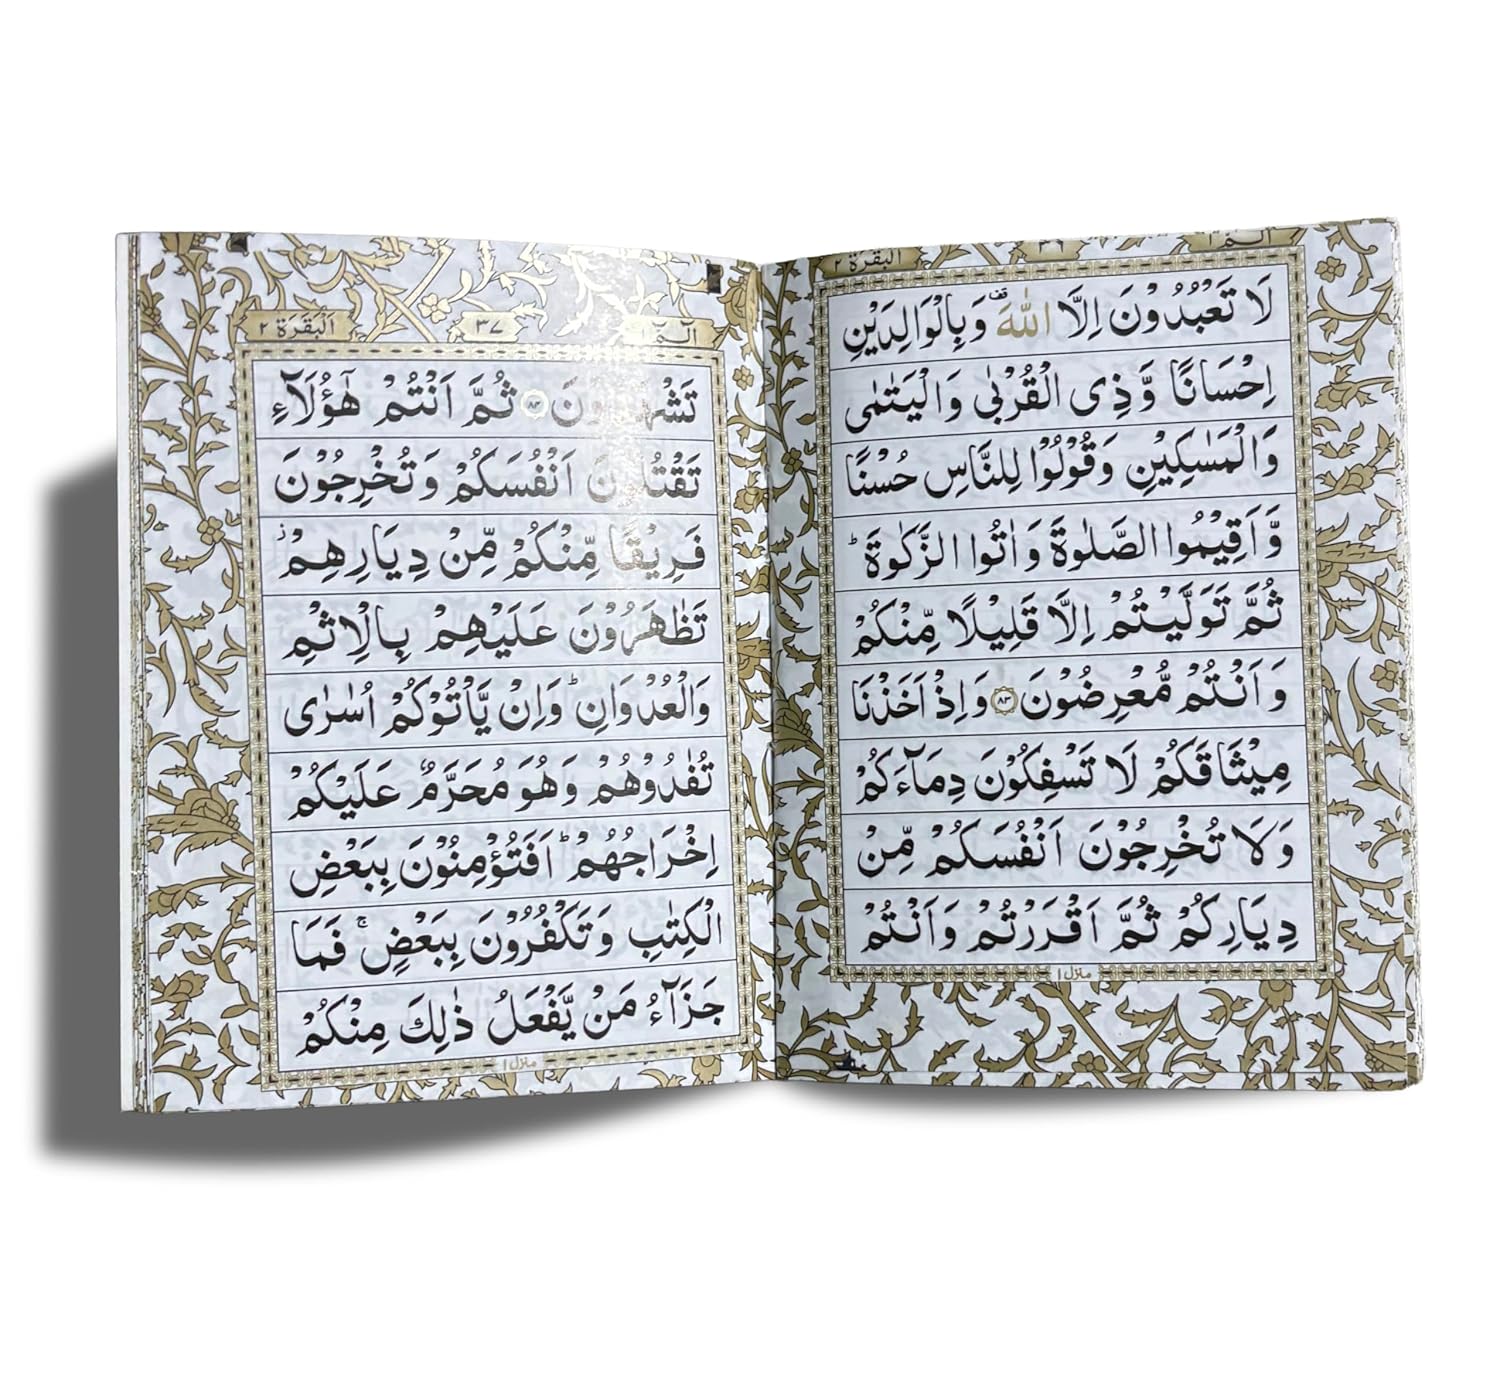 الٓمّٓ ١
٣٦
البقرة ٢
لَا تَعْبُدُوْنَ اِلَّا اللّٰهَ ۫ وَبِالْوَالِدَيْنِ
اِحْسَانًا وَّذِی الْقُرْبٰی وَالْيَتٰمٰی
وَالْمَسٰكِيْنِ وَقُوْلُوْا لِلنَّاسِ حُسْنًا
وَّاَقِيْمُوا الصَّلٰوةَ وَاٰتُوا الزَّكٰوةَ ؕ
ثُمَّ تَوَلَّيْتُمْ اِلَّا قَلِيْلًا مِّنْكُمْ
وَاَنْتُمْ مُّعْرِضُوْنَ ۝٨٣ وَاِذْ اَخَذْنَا
مِيْثَاقَكُمْ لَا تَسْفِكُوْنَ دِمَآءَكُمْ
وَلَا تُخْرِجُوْنَ اَنْفُسَكُمْ مِّنْ
دِيَارِكُمْ ثُمَّ اَقْرَرْتُمْ وَاَنْتُمْ
منزل ١
الٓمّٓ
٣٧
البقرة ٢
ثُمَّ اَنْتُمْ هٰٓؤُلَآءِ
تَقْتُلُوْنَ اَنْفُسَكُمْ وَتُخْرِجُوْنَ
فَرِيْقًا مِّنْكُمْ مِّنْ دِيَارِهِمْ ؗ
تَظٰهَرُوْنَ عَلَيْهِمْ بِالْاِثْمِ
وَالْعُدْوَانِ ؕ وَاِنْ يَّاْتُوْكُمْ اُسٰرٰی
تُفٰدُوْهُمْ وَهُوَ مُحَرَّمٌ عَلَيْكُمْ
اِخْرَاجُهُمْ ؕ اَفَتُؤْمِنُوْنَ بِبَعْضِ
الْكِتٰبِ وَتَكْفُرُوْنَ بِبَعْضٍ ۚ فَمَا
جَزَآءُ مَنْ يَّفْعَلُ ذٰلِكَ مِنْكُمْ
منزل ١